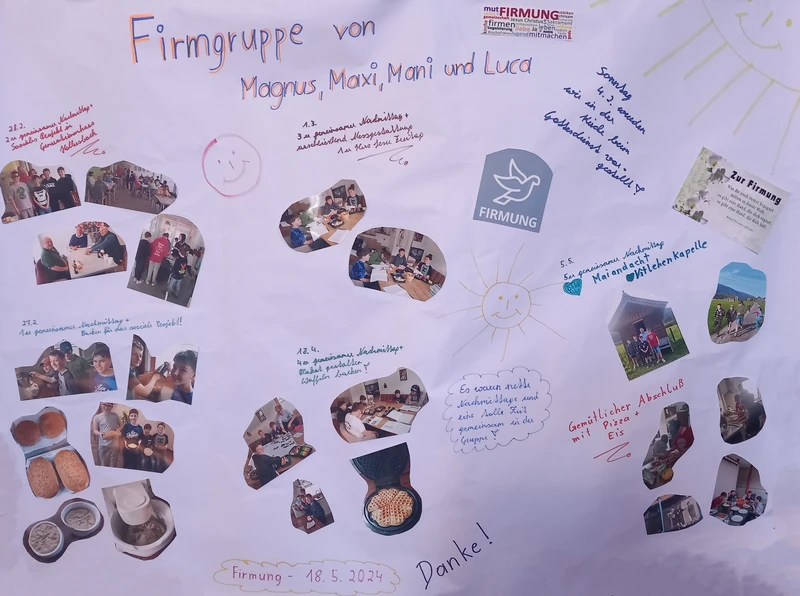 Firmgruppe von
Magnus, Maxi, Mani und Luca
mut FIRMUNG
Jesus Christus
firmen
mitmachen
Sonntag
4.2. wurden
wir in der
Kirche beim
Gottesdienst vor-
gestellt
28.2.
2er gemeinsamer Nachmittag +
Soziales Projekt in
1.3.
3er gemeinsamer Nachmittag +
anschließend Messgestaltung
FIRMUNG
Zur Firmung
5.5.
5er gemeinsamer Nachmittag
Maiandacht
27.2.
1er gemeinsamer Nachmittag +
Backen für das soziale Projekt!
4er gemeinsamer Nachmittag +
Plakat gestalten
Waffeln backen!
Es waren nette
Nachmittage und
eine tolle Zeit
gemeinsam in der
Gruppe
Gemütlicher Abschluß
mit Pizza +
Eis
Firmung - 18.5.2024
Danke!